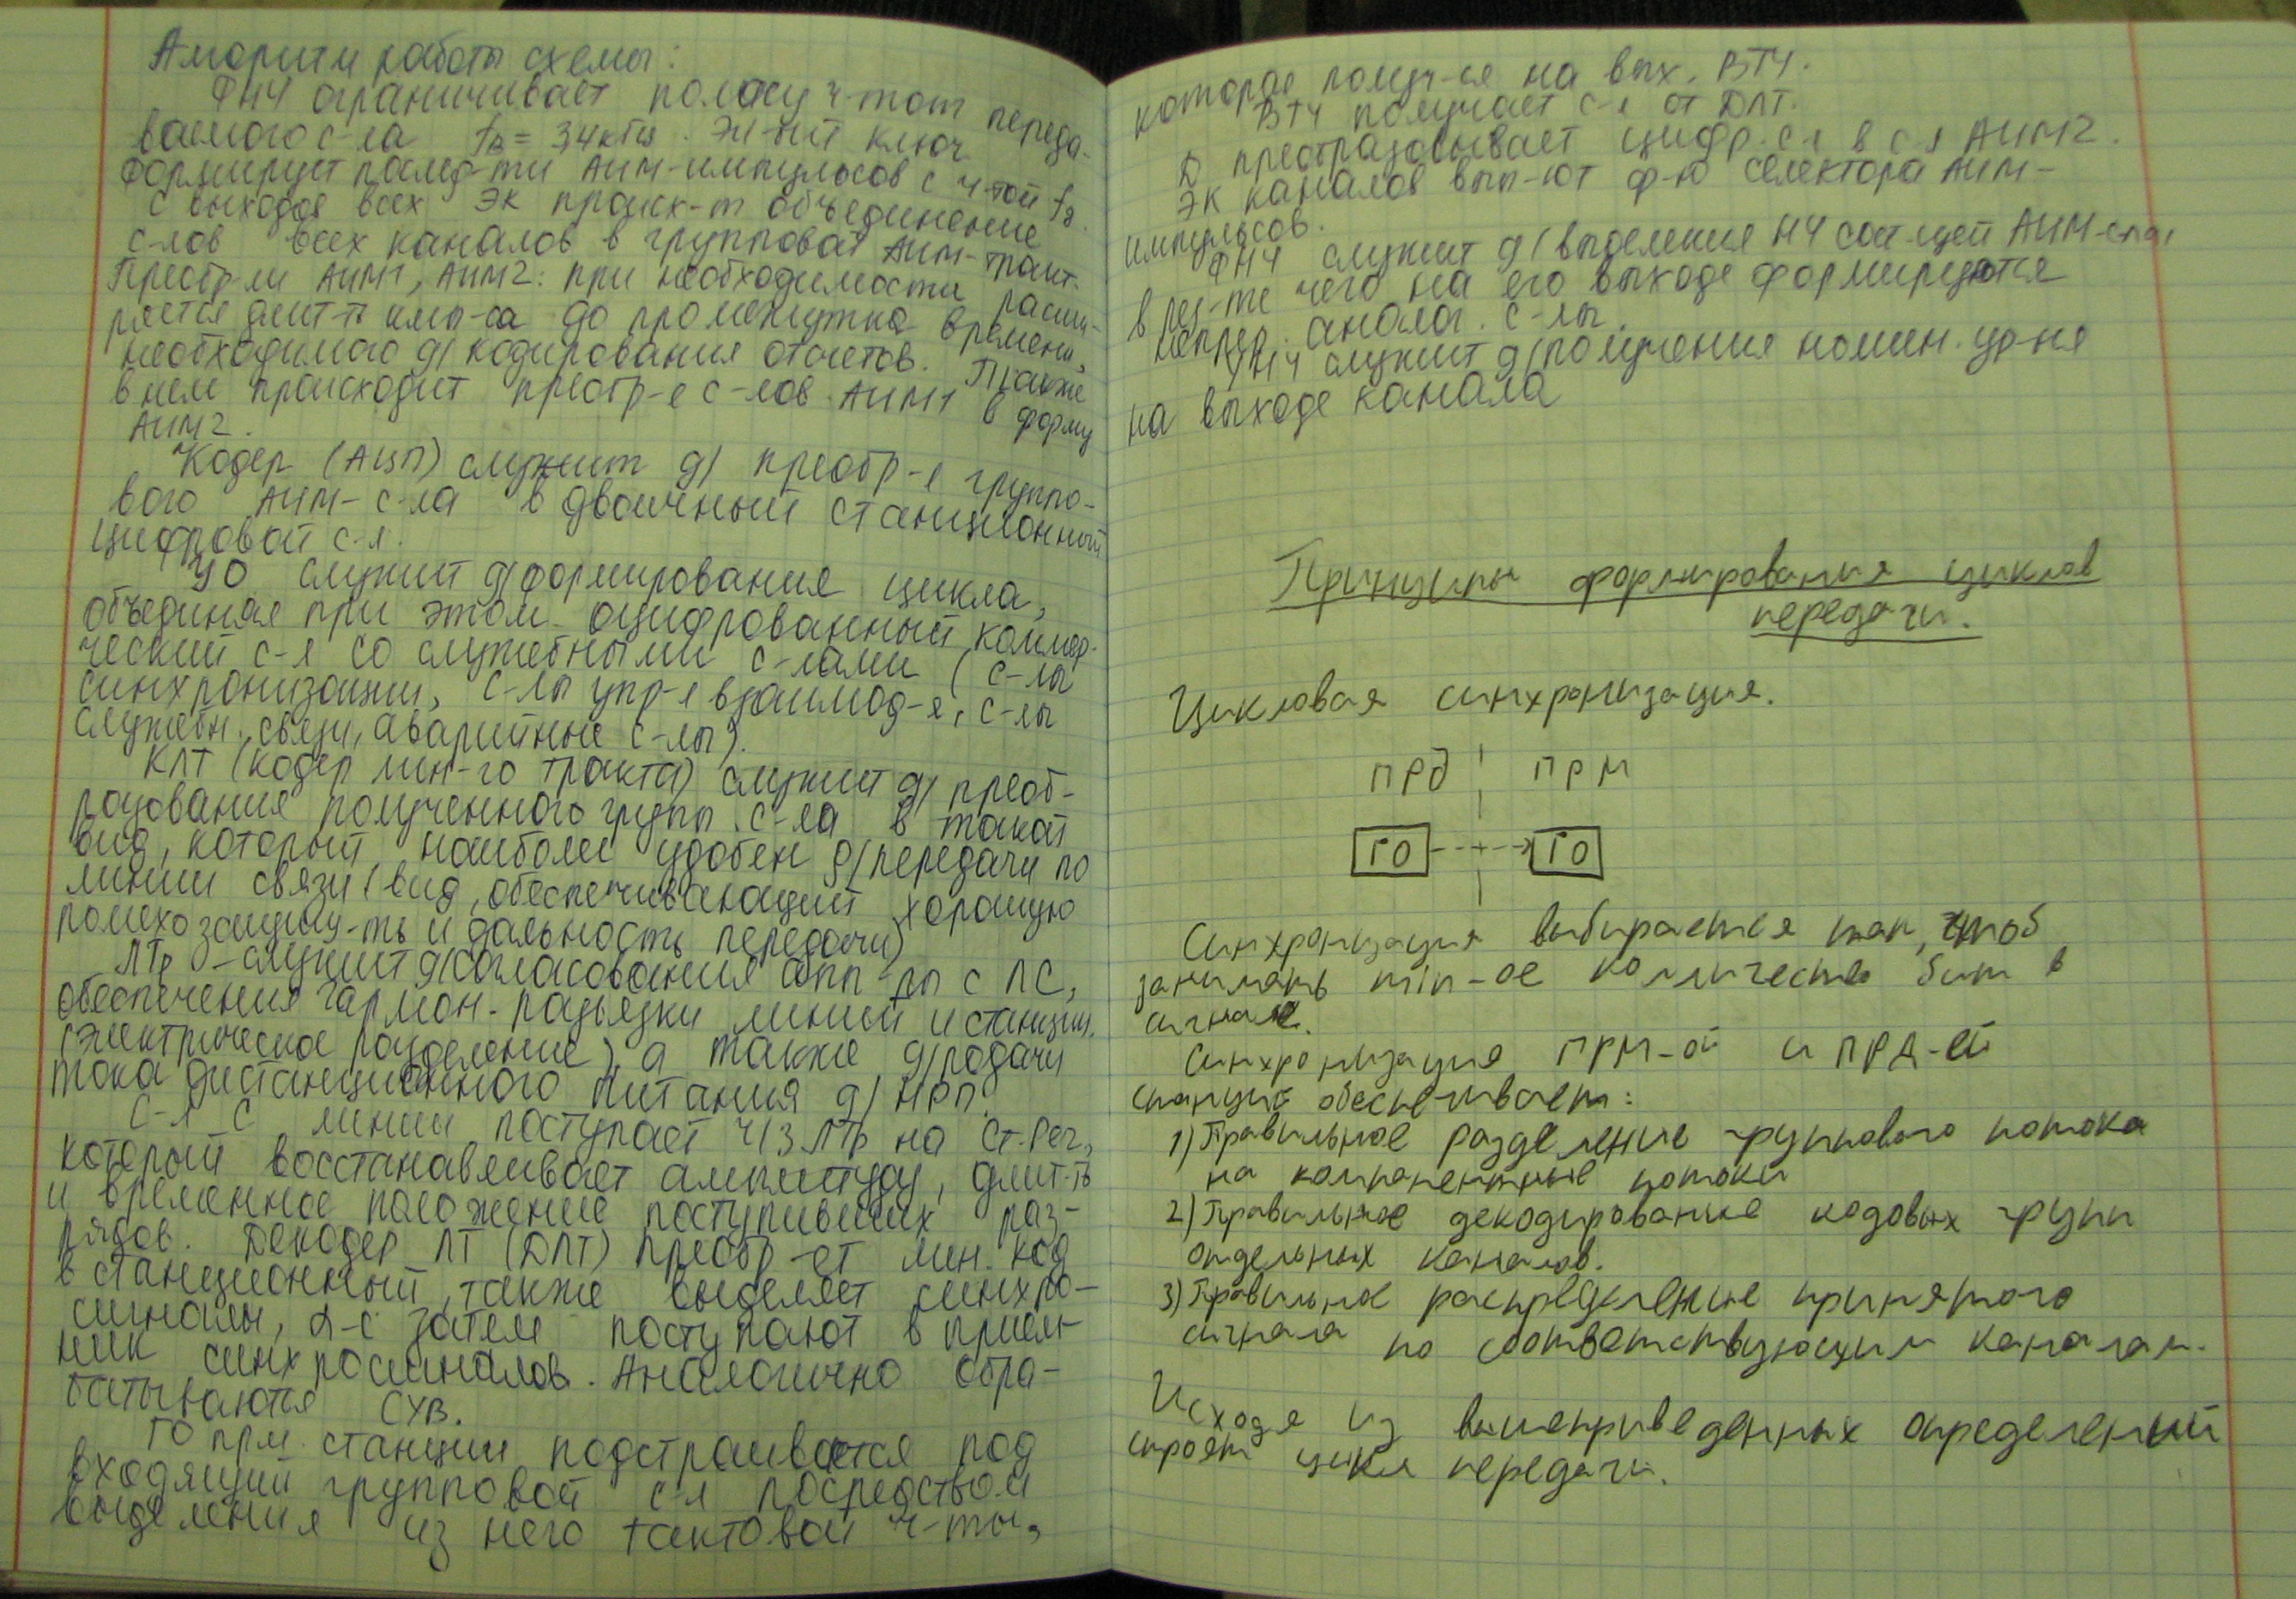 Алгоритм работы схемы:
ФНЧ ограничивает полосу ч-тот переда-
ваемого с-ла fв = 3,4 кГц. Эл-ный ключ
формирует послед-ти АИМ-импульсов с ч-той fд.
С выходов всех ЭК происх-т объединение
с-лов всех каналов в групповой АИМ-тракт.
Преобр-ли АИМ1, АИМ2: при необходимости расши-
ряется длит-ть имп-са до промежутка времени,
необходимого д/ кодирования отсчетов. Также
в нем происходит преобр-е с-лов АИМ1 в форму
АИМ2.
Кодер (АЦП) служит д/ преобр-я группо-
вого АИМ-с-ла в двоичный станционный
цифровой с-л.
УО служит д/формирования цикла,
объединяя при этом оцифрованный коммер-
ческий с-л со служебными с-лами (с-лы
синхронизации, с-лы упр-я взаимод-я, с-лы
служебн. связи, аварийные с-лы).
КЛТ (кодер лин-го тракта) служит д/ преоб-
разования полученного групп. с-ла в такой
вид, который наиболее удобен д/передачи по
линии связи (вид, обеспечивающий хорошую
помехозащищ-ть и дальность передачи)
ЛТр - служит д/согласования апп-ры с ЛС,
обеспечения гармон. развязки линии и станции.
(электрическое разделение), а также д/подачи
тока дистанционного питания д/ НРП.
С-л с линии поступает ч/з ЛТр на Ст.Рег,
который восстанавливает амплитуду, длит-ть
и временное положение поступивших раз-
рядов. Декодер ЛТ (ДЛТ) преобр-ет лин. код
в станционный, также выделяет синхро-
сигналы, к-е затем поступают в прием-
ник синхросигналов. Аналогично обра-
батываются СУВ.
ГО прм. станции подстраивается под
входящий групповой с-л посредством
выделения из него тактовой ч-ты,
которое получ-ся на вых. ВТЧ.
ВТЧ получает с-л от ДЛТ.
Д преобразовывает цифр. с-л в с-л АИМ2.
ЭК каналов вып-ют ф-ю селектора АИМ-
импульсов.
ФНЧ служит д/выделения НЧ сост-щей АИМ-сла,
в рез-те чего на его выходе формируются
непрер. аналог. с-лы.
УНЧ служит д/получения номин. ур-ня
на выходе канала
Принципы формирования циклов
передачи.
Цикловая синхронизация.
ПРД ПРМ
ГО ГО
Синхронизация выбирается так, чтоб
занимать min-ое колличество бит в
сигнале.
Синхронизация ПРМ-ой и ПРД-ей
станций обеспечивает:
1) Правильное разделение групового потока
на компонентные потоки
2) Правильное декодирование кодовых групп
отдельных каналов.
3) Правильное распределение принятого
сигнала по соответствующим каналам.
Исходя из вышеприведенных определений
строят цикл передачи.